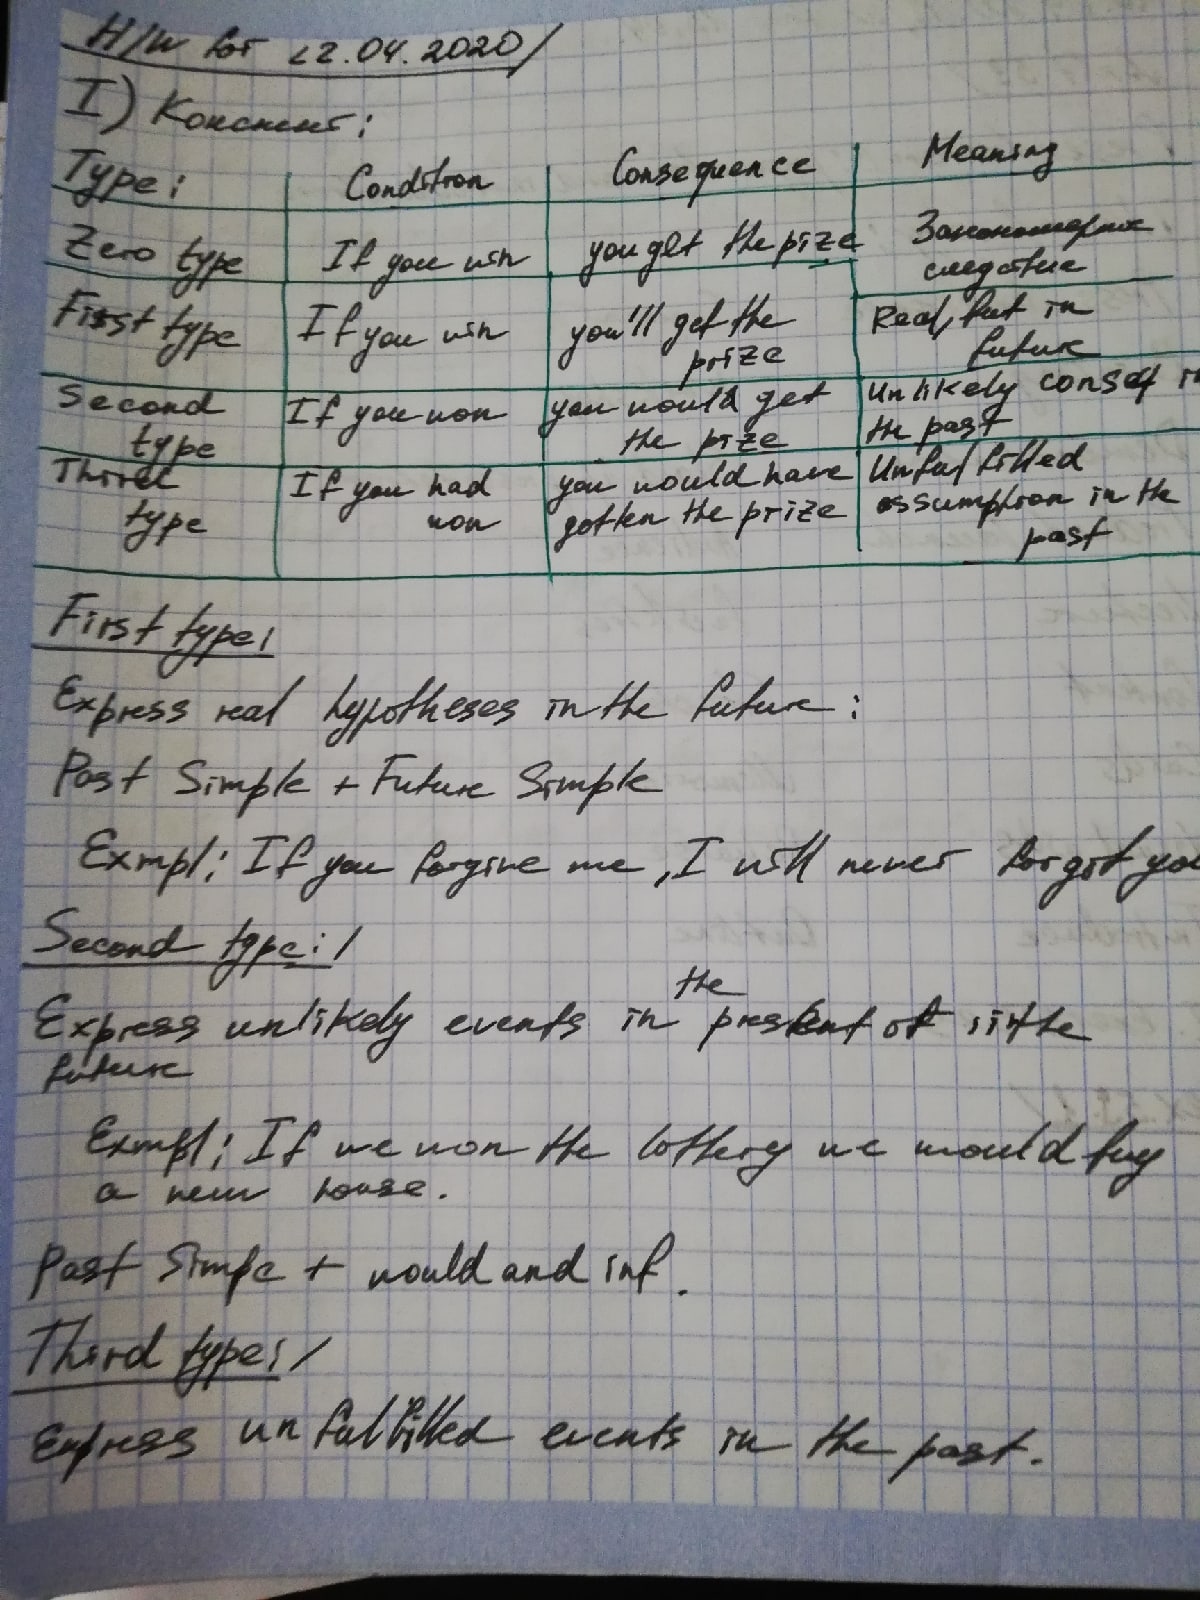 H/W for 22.04.2020/
I) Конспект:
Type: Condition Consequence Meaning
Zero type If you win you get the pize Закономерное следствие
First type If you win you'll get the prize Real, but in future
Second type If you won you would get the prize Unlikely conseq in the past
Third type If you had won you would have gotten the prize Unfulfilled assumption in the past
First type:
Express real hypotheses in the future:
Past Simple + Future Simple
Exmpl: If you forgive me, I will never forgot you
Second type:/
the
Express unlikely events in present or the
future
Exmpl: If we won the lottery we would buy
a new house.
Past Simpe + would and inf.
Third type:/
Express unfulfilled events in the past.